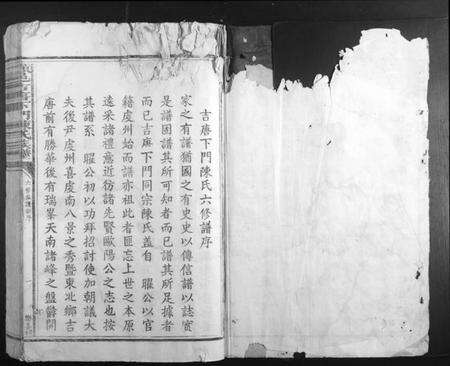 吉庠下門陳氏六修譜序
家之有譜猶國之有史史以傳信譜以誌實
是譜固譜其所可知者而已譜其所足據者
而已吉庠下門同宗陳氏蓋自 曜公以官
籍虔州始而譜亦祖此者匪忘上世之本原
遠釆諸禮意近彷諸先賢歐陽公之志也按
其譜系 曜公初以功拜招討使加朝議大
夫後尹虔州喜虔南八景之秀暨東北鄉吉
庠前有勝華後有瑞峯天南諸峰之盤欝開